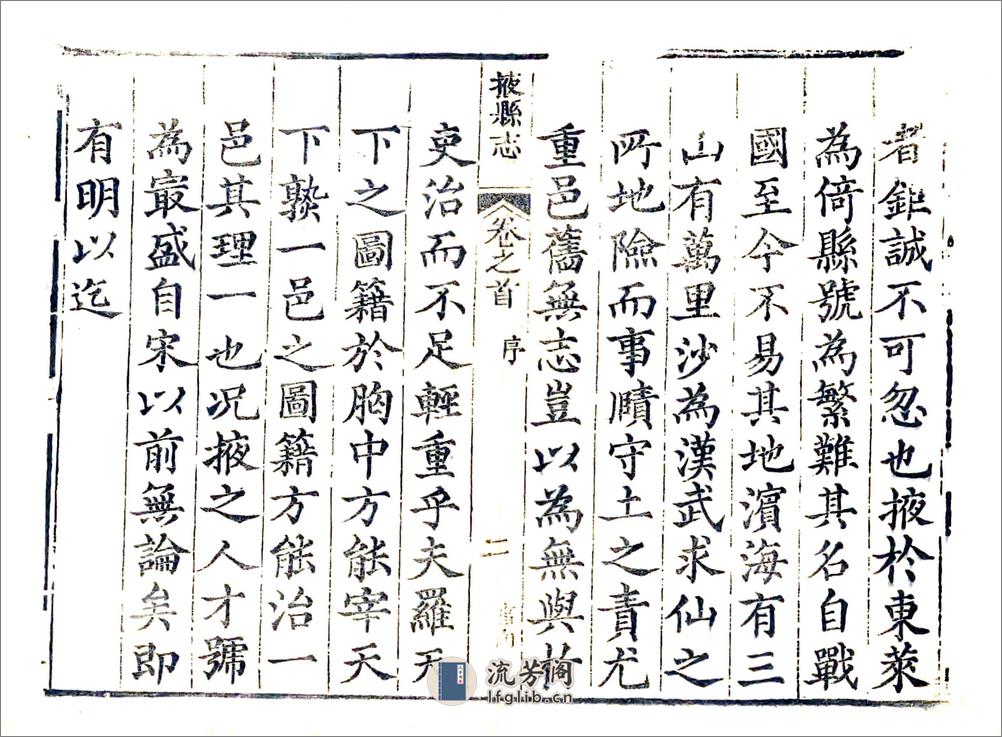 者鉅誠不可忽也掖於東萊
為倚縣號為繁難其名自戰
國至今不易其地濱海有三
山有萬里沙為漢武求仙之
所地險而事賾守土之責尤
重邑舊無志豈以為無與於
掖縣志
卷之首
序
二
吏治而不足輕重乎夫羅天
下之圖籍於胸中方能宰天
下褻一邑之圖籍方能治一
邑其理一也况掖之人才號
為最盛自宋以前無論矣即
有明以迄
流芳阁
lfglib.cn